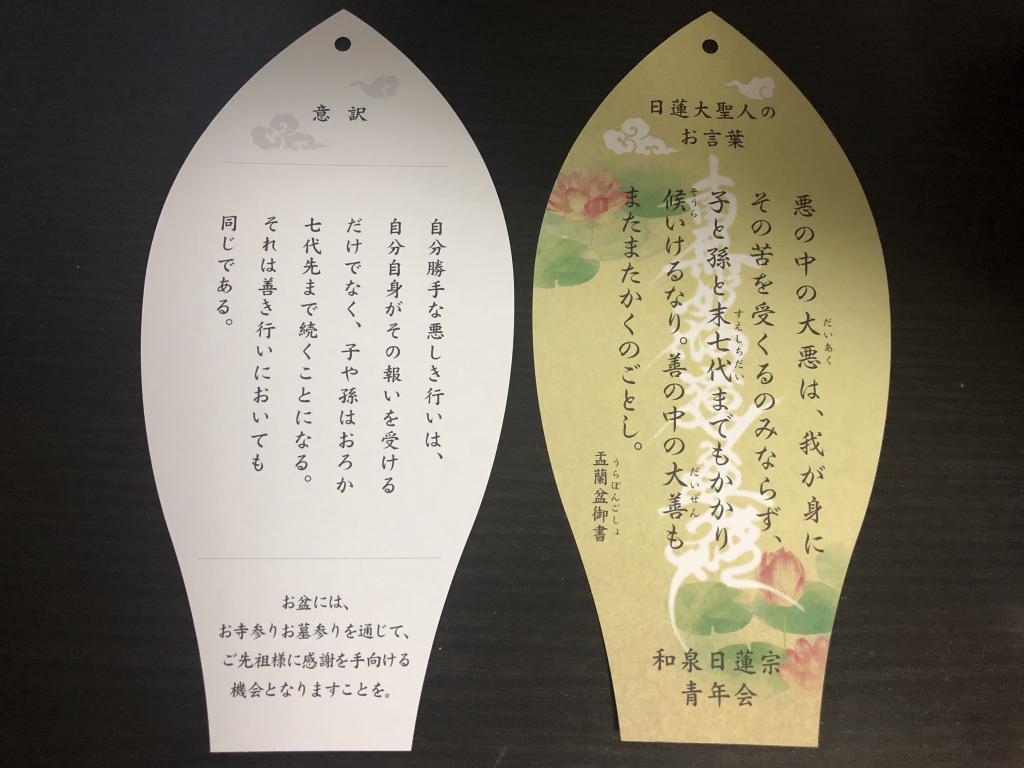 意訳
自分勝手な悪しき行いは、
自分自身がその報いを受ける
だけでなく、子や孫はおろか
七代先まで続くことになる。
それは善き行いにおいても
同じである。
お盆には、
お寺参りお墓参りを通じて、
ご先祖様に感謝を手向ける
機会となりますことを。
日蓮大聖人の
お言葉
悪の中の大悪は、我が身に
だいあく
その苦を受くるのみならず、
子と孫と末七代までもかかり
すえしちだい
候いけるなり。善の中の大善も
そうら
だいぜん
またまたかくのごとし。
盂蘭盆御書
うらぼんごしょ
南無妙法蓮華経
和泉日蓮宗
青年会